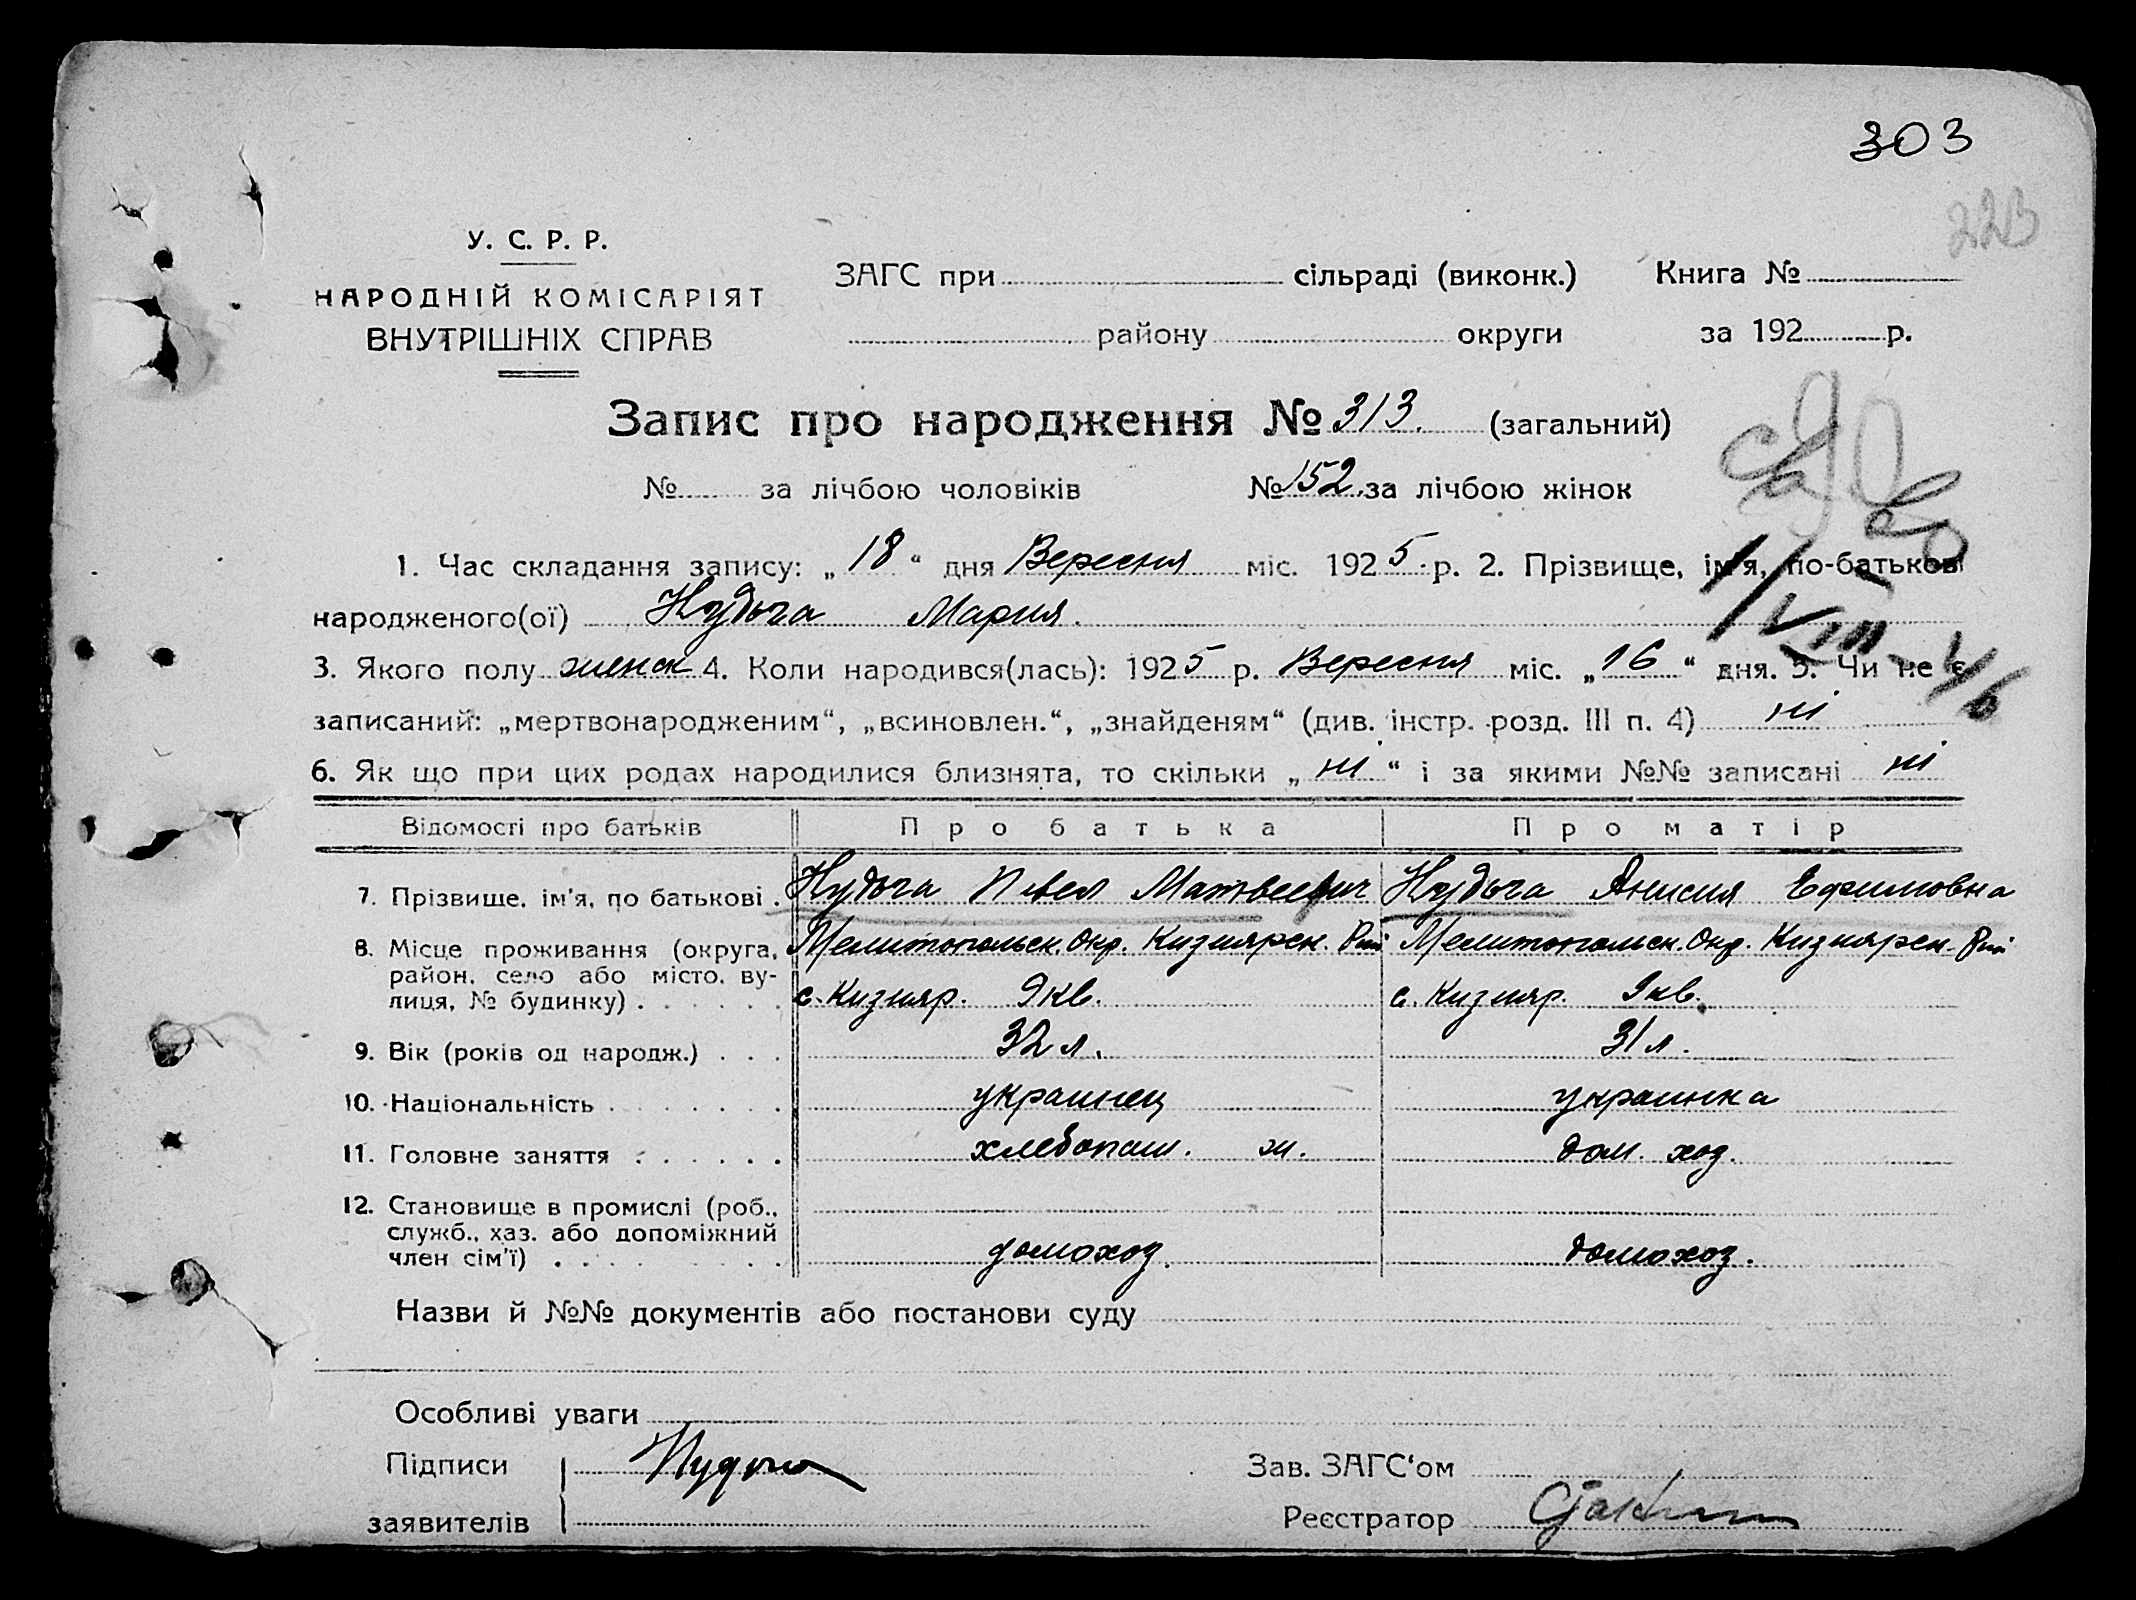 303
223
У. С. Р. Р.
НАРОДНІЙ КОМІСАРІЯТ
ВНУТРІШНІХ СПРАВ
ЗАГС при сільраді (виконк.) Книга №
району округи за 192 р.
Запис про народження № 313. (загальний)
№ за лічбою чоловіків № 152. за лічбою жінок
1. Час складання запису: „18“ дня Вересня міс. 1925 р. 2. Прізвище, ім'я, по-батькові
народженого(ої) Нудьга Мария.
3. Якого полу женск 4. Коли народився(лась): 1925 р. Вересня міс. „16“ дня. 5. Чи не є
записаний: „мертвонародженим“, „всиновлен.“, „знайденям“ (див. інстр. розд. III п. 4) ні
6. Як що при цих родах народилися близнята, то скільки „ні“ і за якими №№ записані ні
Відомості про батьків Про батька Про матір
7. Прізвище, ім'я, по батькові . Нудьга Павел Матвеевич Нудьга Анисия Ефимовна
8. Місце проживання (округа, Мелитопольск. Окр. Кизиярск. Рай Мелитопольск. Окр. Кизиярск. Рай
район, село або місто, ву- с. Кизияр. 9 кв. с. Кизияр. 9 кв.
лиця, № будинку) . . . . . .
9. Вік (років од народж.) . . . 32 л. 31 л.
10. Національність . . . . . . . украинец украинка
11. Головне заняття . . . . . . хлебопаш. дом. хоз.
12. Становище в промислі (роб.,
служб., хаз. або допоміжний
член сім'ї) . . . . . . . . домохоз. домохоз.
Назви й №№ документів або постанови суду
Особливі уваги
Підписи Нудьга Зав. ЗАГС'ом
заявителів Реєстратор